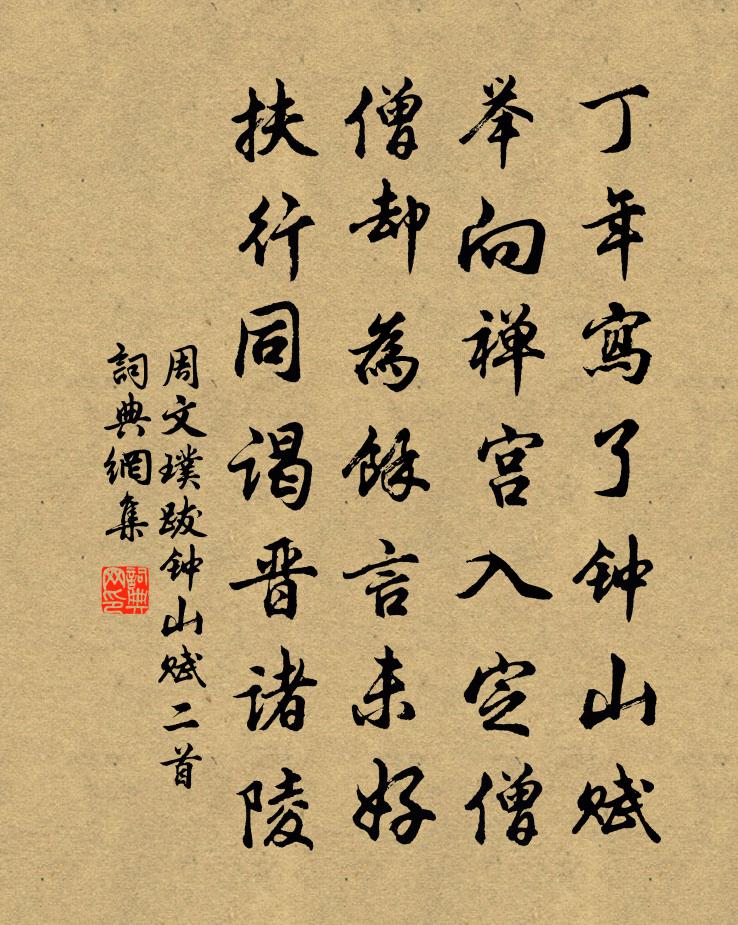 丁年寫了钟山赋
举向禅宫入定僧
僧却為餘言未好
扶行同谒晋诸陵
周文璞跋钟山赋二首
詞典網集
詞典网印